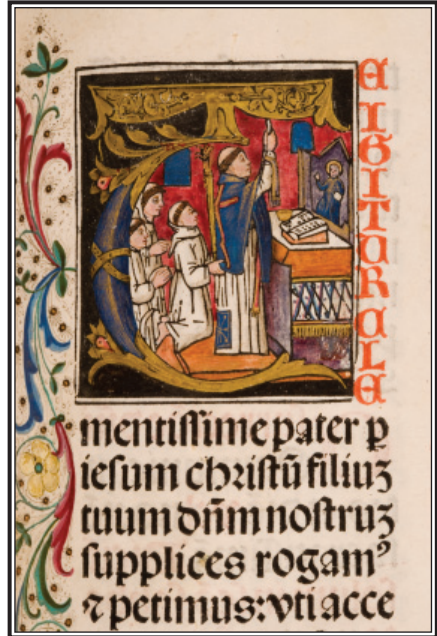 TEIGITURCLE
mentiſſime pater ꝑ
ieſum chꝛiſtū filiuꝫ
tuum dn̄m noſtruꝫ
ſupplices rogamꝰ
⁊ petimus: vti acce